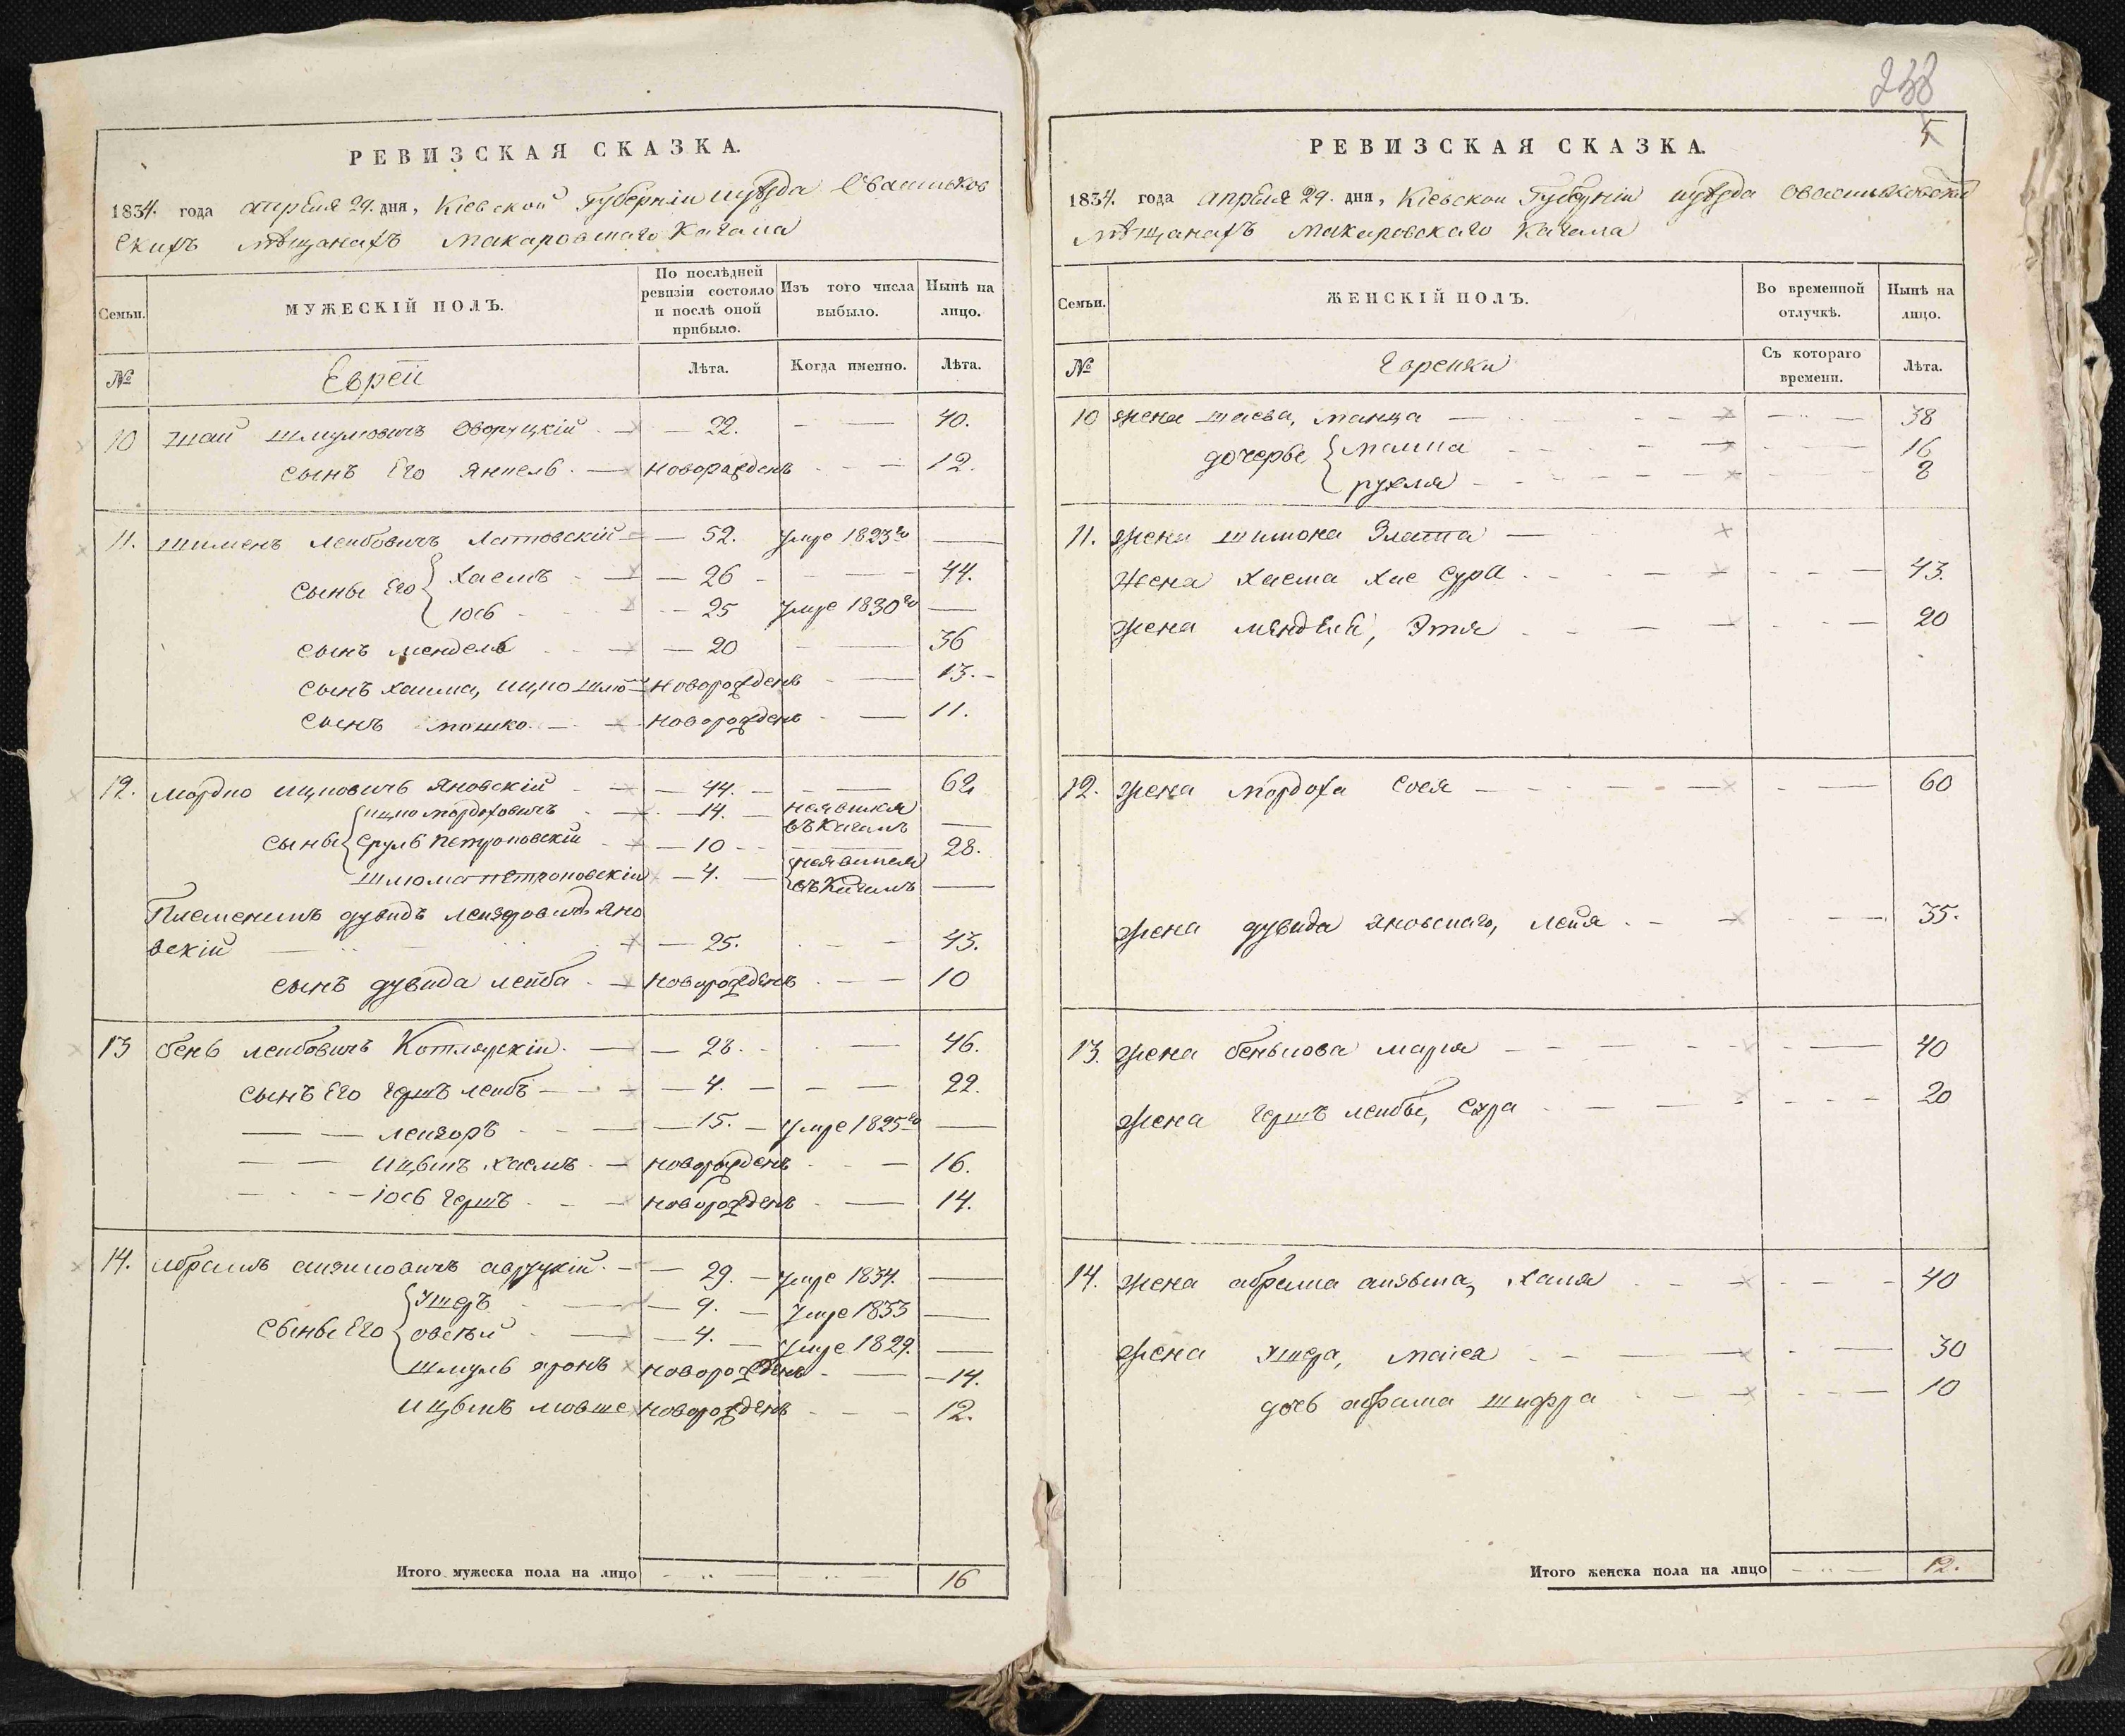 238
5
РЕВИЗСКАЯ СКАЗКА.
1834. года апреля 29. дня, Кіевской Губерніи уѣзда Овасильков
скихъ мѣщанахъ Макаровскаго Кагала
Семьи.
МУЖЕСКІЙ ПОЛЪ.
По послѣдней ревизіи состояло и послѣ оной прибыло.
Изъ того числа выбыло.
Нынѣ на лицо.
№ Еврей Лѣта. Когда именно. Лѣта.
10 Шай Шмуловичъ Овруцкій — 22. — — 40.
сынъ Его Янкель — новорожденъ — 12.
11. Шименъ Лейбовичъ Латовскій — 52. умре 1823го —
сыны Его { Хаемъ — 26 — 44.
Іось — 25 умре 1830го —
сынъ Мендель — 20 — 36
сынъ Хаима, Ицко Шлю — новорожденъ — 13.
сынъ Мошко — новорожденъ — 11.
12. Мордко Ицковичъ Яновскій — 44. — 62
сыны { Ицко Мордоховичъ — 14. — неявился въ Кагалъ —
Сруль Петроповскій — 10 — 28.
Шлюма Петроповскій — 4. — неявился въ Кагалъ —
Племеникъ Дувидъ Лейзеровичъ Яно
вскій — 25. — 43.
сынъ Дувида Лейба — новорожденъ — 10
13 Бенъ Лейбовичъ Котлярскій — 28. — 46.
сынъ Его Гершъ Лейбъ — 4. — 22.
— — Лейзоръ — 15. — умре 1825го —
— — Ицыкъ Хаемъ — новорожденъ — 16.
— — Іось Гершъ — новорожденъ — 14.
14. Абрамъ Айзиковичъ Авруцкій — 29. — умре 1834. —
сыны Его { Ушеръ — 9. — умре 1833 —
Овсѣй — 4. — умре 1829. —
Шмуль Аронъ новорожденъ — 14.
Ицыкъ Мовше новорожденъ — 12.
Итого мужеска пола на лицо — — 16
РЕВИЗСКАЯ СКАЗКА.
1834. года апреля 29. дня, Кіевской Губерніи уѣзда Овасильковской
мѣщанахъ Макаровскаго Кагала
Семьи.
ЖЕНСКІЙ ПОЛЪ.
Во временной отлучкѣ.
Нынѣ на лицо.
№ Еврейки Съ котораго времени. Лѣта.
10 жена Шаева, Манца — — 38
дочерьы { Малка — — 16
Рухля — — 8
11. жена Шимона Злата —
жена Хаема Хае Сура — — 43.
жена Мендѣля, Этя — — 20
12. жена Мордоха Сося — — 60
жена Дувида Яновскаго, Лейя — — 35.
13. жена Бенькова Марія — — 40
жена Гершъ Лейбы, Сура — — 20
14. жена Абрама Айзыка, Хаия — — 40
жена Ушера, Маіея — — 30
дочь Абрама Шифра — — 10
Итого женска пола на лицо — — 12.